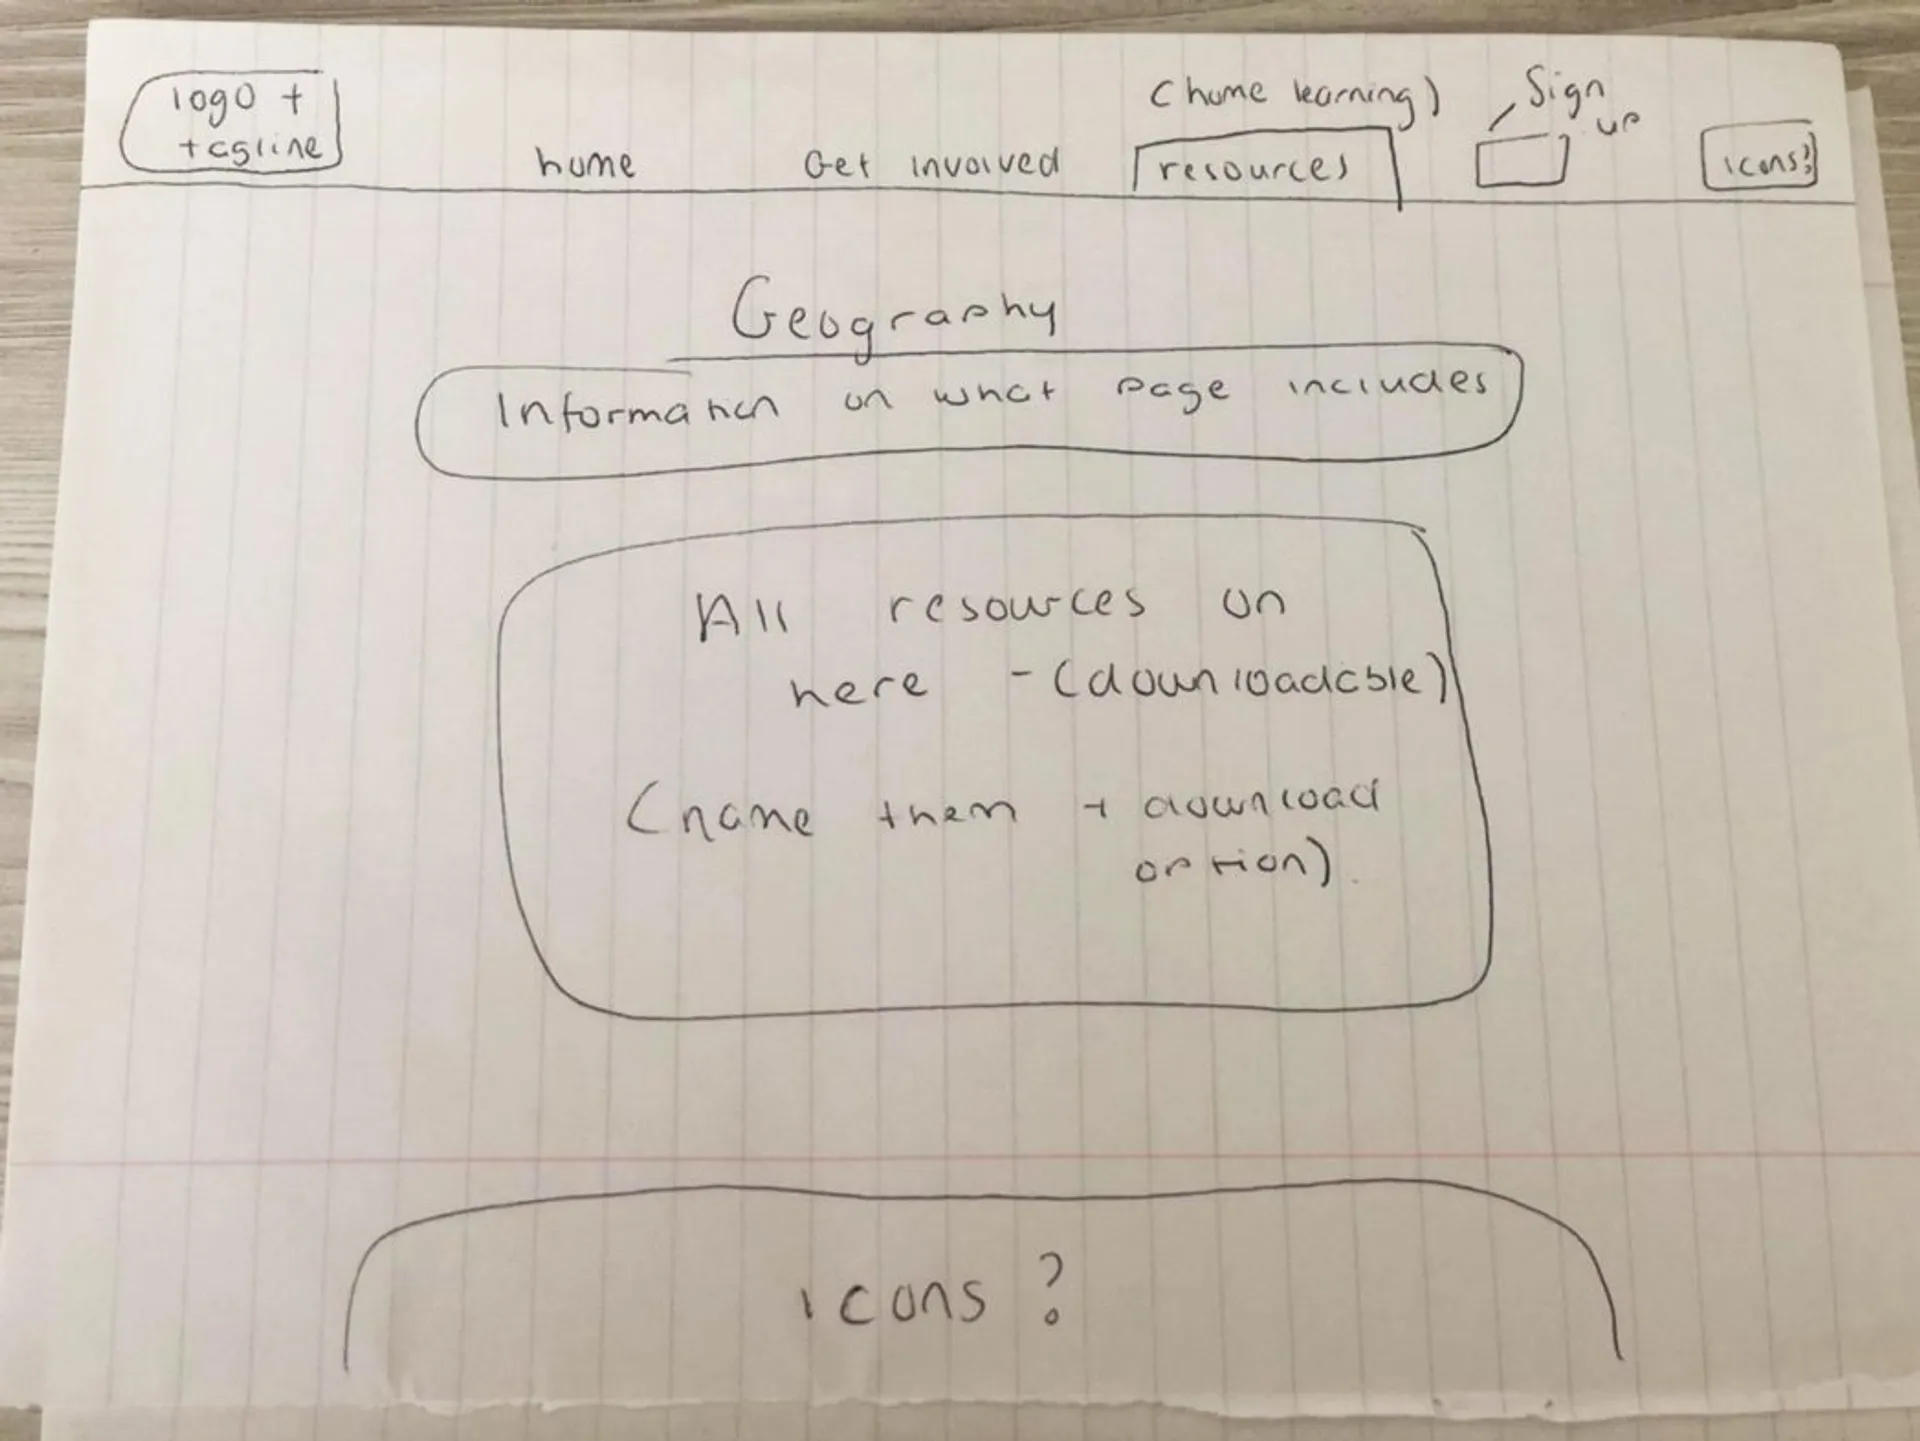 logo +
tagline
home
Get involved
(home learning)
resources
Sign
up
icons?
Geography
Information on what page includes
All resources on
here - (downloadable)
(name them + download
option)
icons ?